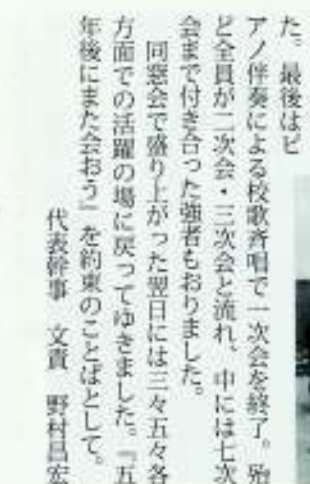 た。最後はピ
アノ伴奏による校歌斉唱で一次会を終了。殆
ど全員が二次会・三次会と流れ、中には七次
会まで付き合った強者もおりました。
同窓会で盛り上がった翌日には三々五々各
方面での活躍の場に戻ってゆきました。『五
年後にまた会おう』を約束のことばとして。
代表幹事 文責 野村昌宏